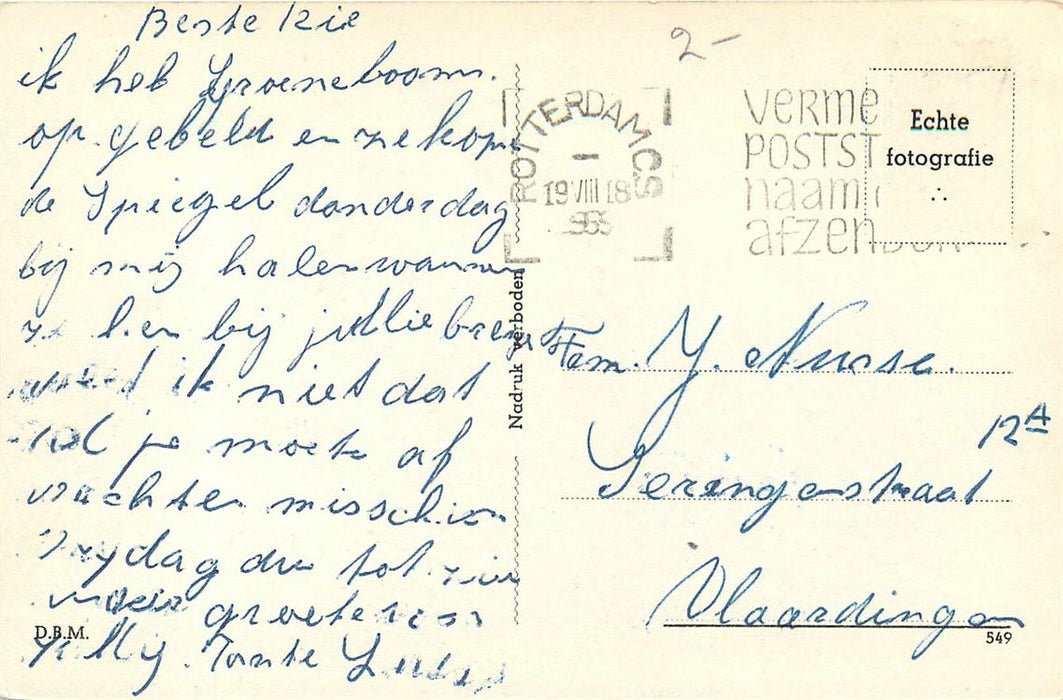 Beste Rie
ik heb Groeneboom.
op gebeld en ze kom
de Spiegel donderdag
bij mij halen wanneer
ze hem bij jullie breng
weet ik niet dat
zal je moete af
wachten misschien
Vrydag dus tot
groeten van
Tante
D.B.M.
Nadruk verboden
2-
ROTTERDAM C.S
19 VIII 18
1955
VERME
POSTST
naam
afzender
Echte
fotografie
Fam. J. Nusse.
Seringenstraat 12A
Vlaardingen
549